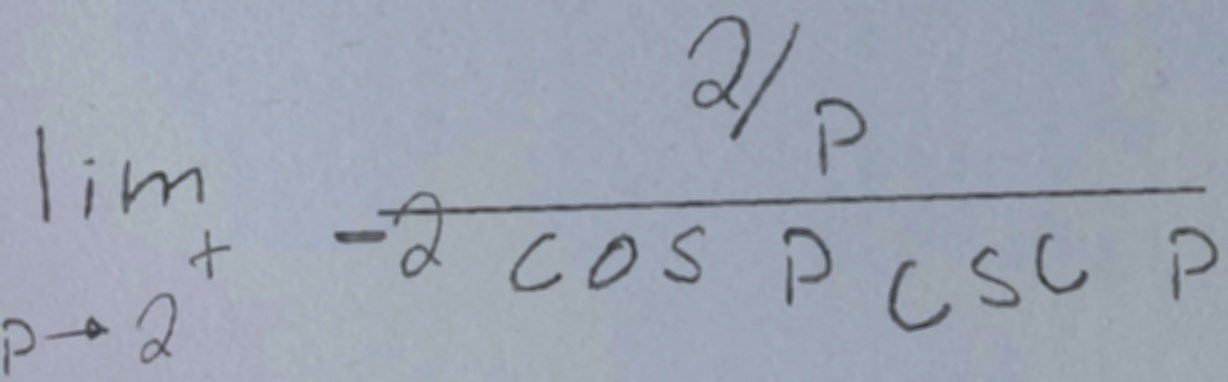 lim p→2⁺ (2/p)/(-2 cos p csc p)